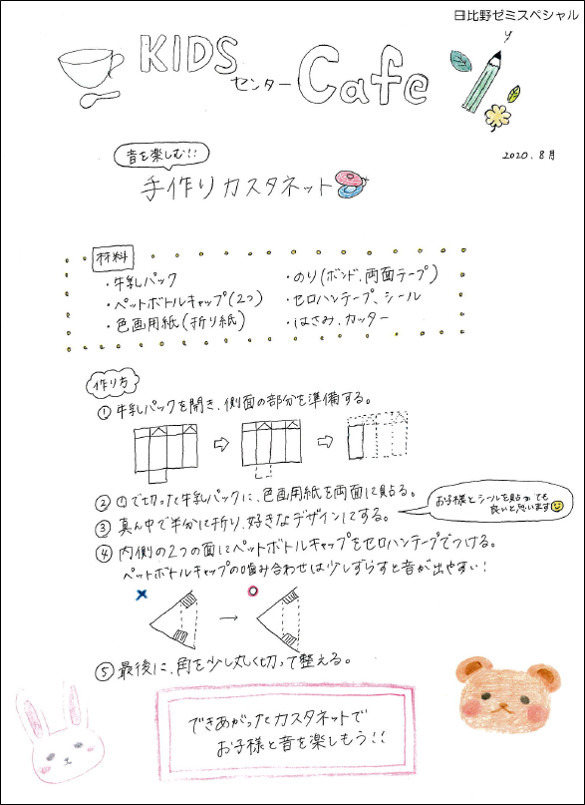 日比野ゼミスペシャル
KIDS
センター Cafe
2020.8月
音を楽しむ!!
手作りカスタネット
材料
・牛乳パック
・ペットボトルキャップ(2つ)
・色画用紙(折り紙)
・のり(ボンド、両面テープ)
・セロハンテープ、シール
・はさみ、カッター
作り方
①牛乳パックを開き、側面の部分を準備する。
②①で切った牛乳パックに、色画用紙を両面に貼る。
③真ん中で半分に折り、好きなデザインにする。
お子様とシールを貼っても
良いと思います
④内側の2つの面にペットボトルキャップをセロハンテープでつける。
ペットボトルキャップの噛み合わせは少しずらすと音が出やすい!
⑤最後に、角を少し丸く切って整える。
できあがったカスタネットで
お子様と音を楽しもう!!